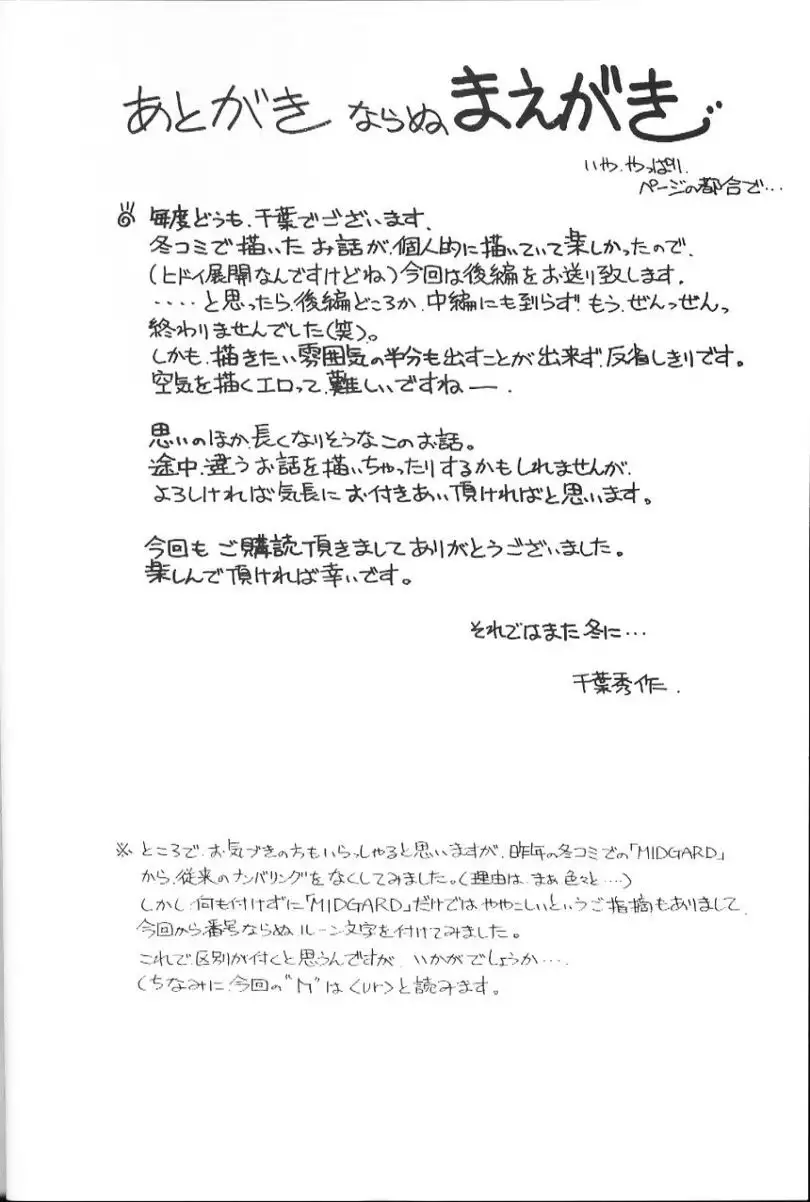 あとがき ならぬ、まえがき
いや、やっぱり、
ページの都合で…
毎度どうも、千葉でございます。
冬コミで描いたお話が、個人的に描いていて楽しかったので、
（ヒドイ展開なんですけどね）今回は後編をお送り致します。
‥‥と思ったら、後編どころか、中編にも到らず！もう、ぜんっぜんっ
終わりませんでした（笑）。
しかも、描きたい雰囲気の半分も出すことが出来ず、反省しきりです。
空気を描くエロって、難しいですねー．
思いのほか、長くなりそうなこのお話。
途中、違うお話を描いちゃったりするかもしれませんが、
よろしければ気長にお付きあい頂ければと思います。
今回もご購読頂きましてありがとうございました。
楽しんで頂ければ幸いです。
それではまた冬に…
千葉秀作．
※ ところで、お気づきの方もいらっしゃると思いますが、昨年の冬コミでの「MIDGARD」
から、従来のナンバリングをなくしてみました。（理由は、まぁ色々と…）
しかし、何も付けずに「MIDGARD」だけではややこしいというご指摘もありまして、
今回から、番号ならぬルーン文字を付けてみました。
これで区別が付くと思うんですが、いかがでしょうか…．
（ちなみに、今回の“ᚢ”は〈ur〉と読みます。